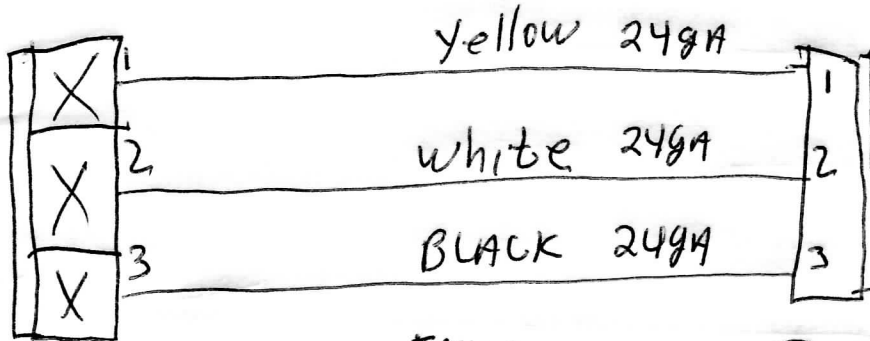 1 Yellow 24gA 1
2 white 24gA 2
3 BLACK 24gA 3